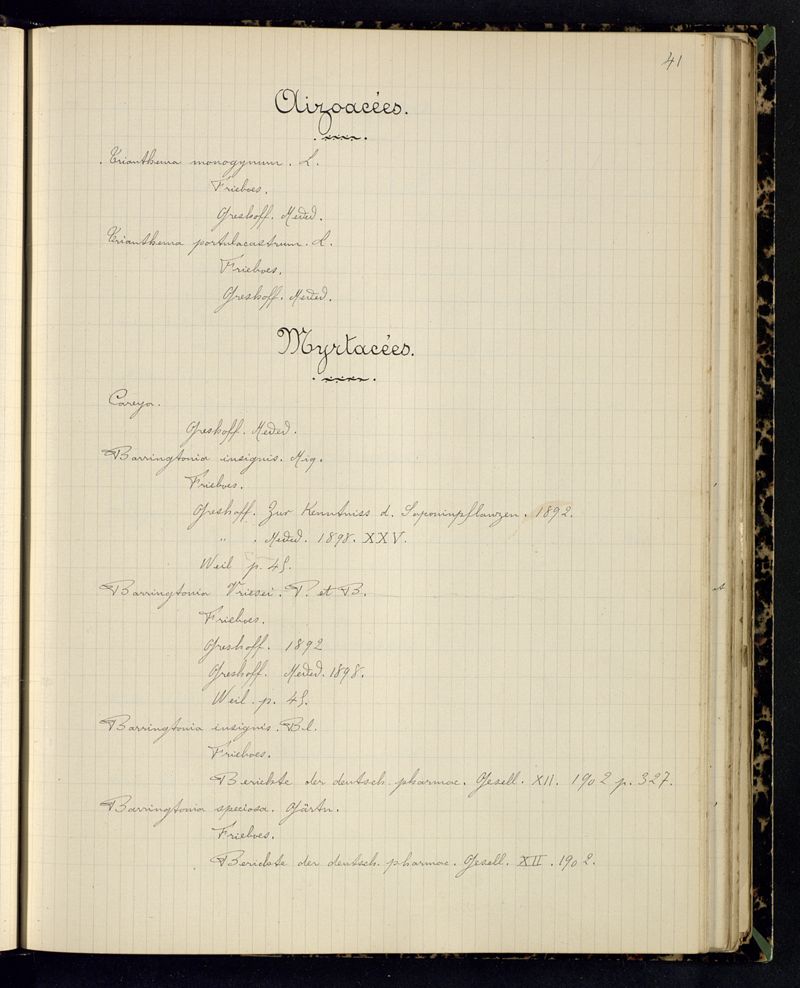 41
Aizoacées.
Trianthema monogynum. L.
Frieboes.
Greshoff. Meded.
Trianthema portulacastrum. L.
Frieboes.
Greshoff. Meded.
Myrtacées.
Careya.
Greshoff. Meded.
Barringtonia insignis. Miq.
Frieboes.
Greshoff. Zur Kenntniss d. Saponinpflanzen. 1892.
" . Meded. 1898. XXV.
Weil p. 45.
Barringtonia Vriesei. T. et B.
Frieboes.
Greshoff. 1892
Greshoff. Meded. 1898.
Weil. p. 45.
Barringtonia insignis. Bl.
Frieboes.
Berichte der deutsch. pharmac. Gesell. XII. 1902 p. 327.
Barringtonia speciosa. Gärtn.
Frieboes.
Berichte der deutsch. pharmac. Gesell. XII. 1902.